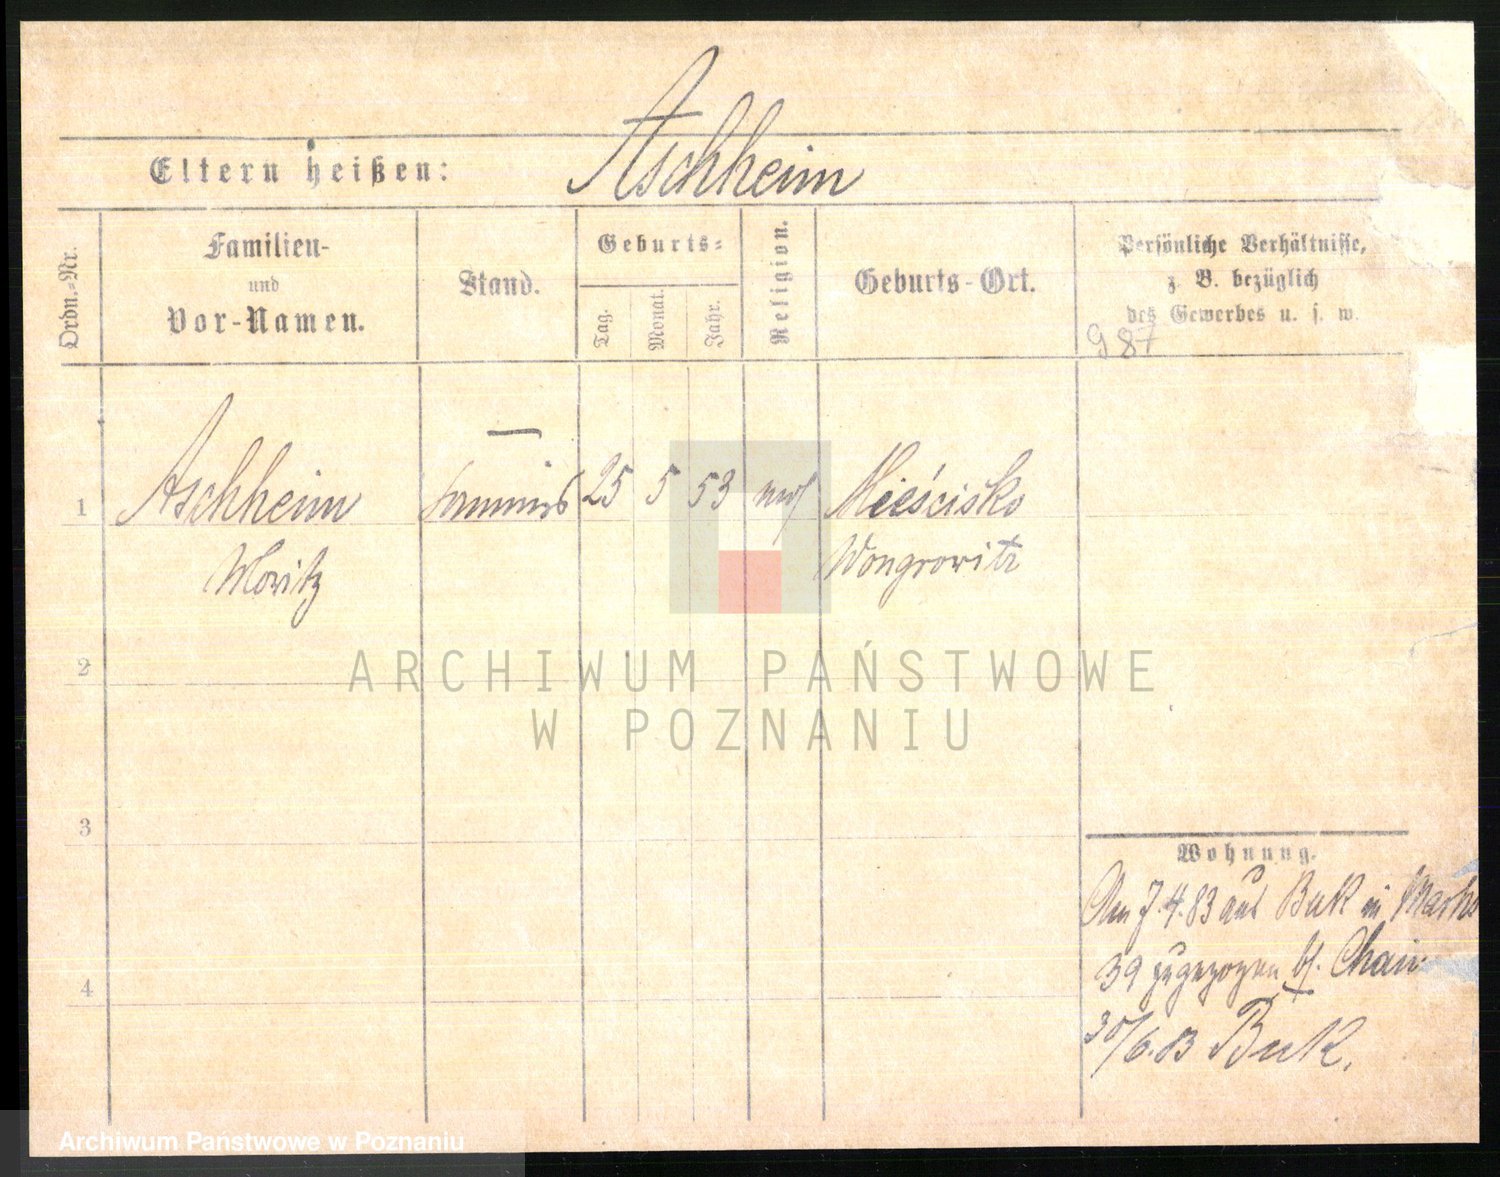 Aschheim
Eltern heißen:
Ordn.-Nr.
Familien-
und
Vor-Namen.
Stand.
Geburts-
Tag.
Monat.
Jahr.
Religion.
Geburts-Ort.
Persönliche Verhältnisse,
z. B. bezüglich
des Gewerbes u. s. w.
987
1
Aschheim
Moritz
25 5 53
Mieścisko
Wongrowitz
2
3
4
Wohnung.
Am 7.4.83 aus Buk in
39 zugezogen bf.
30/6.83 Buk.
ARCHIWUM PAŃSTWOWE
W POZNANIU
Archiwum Państwowe w Poznaniu